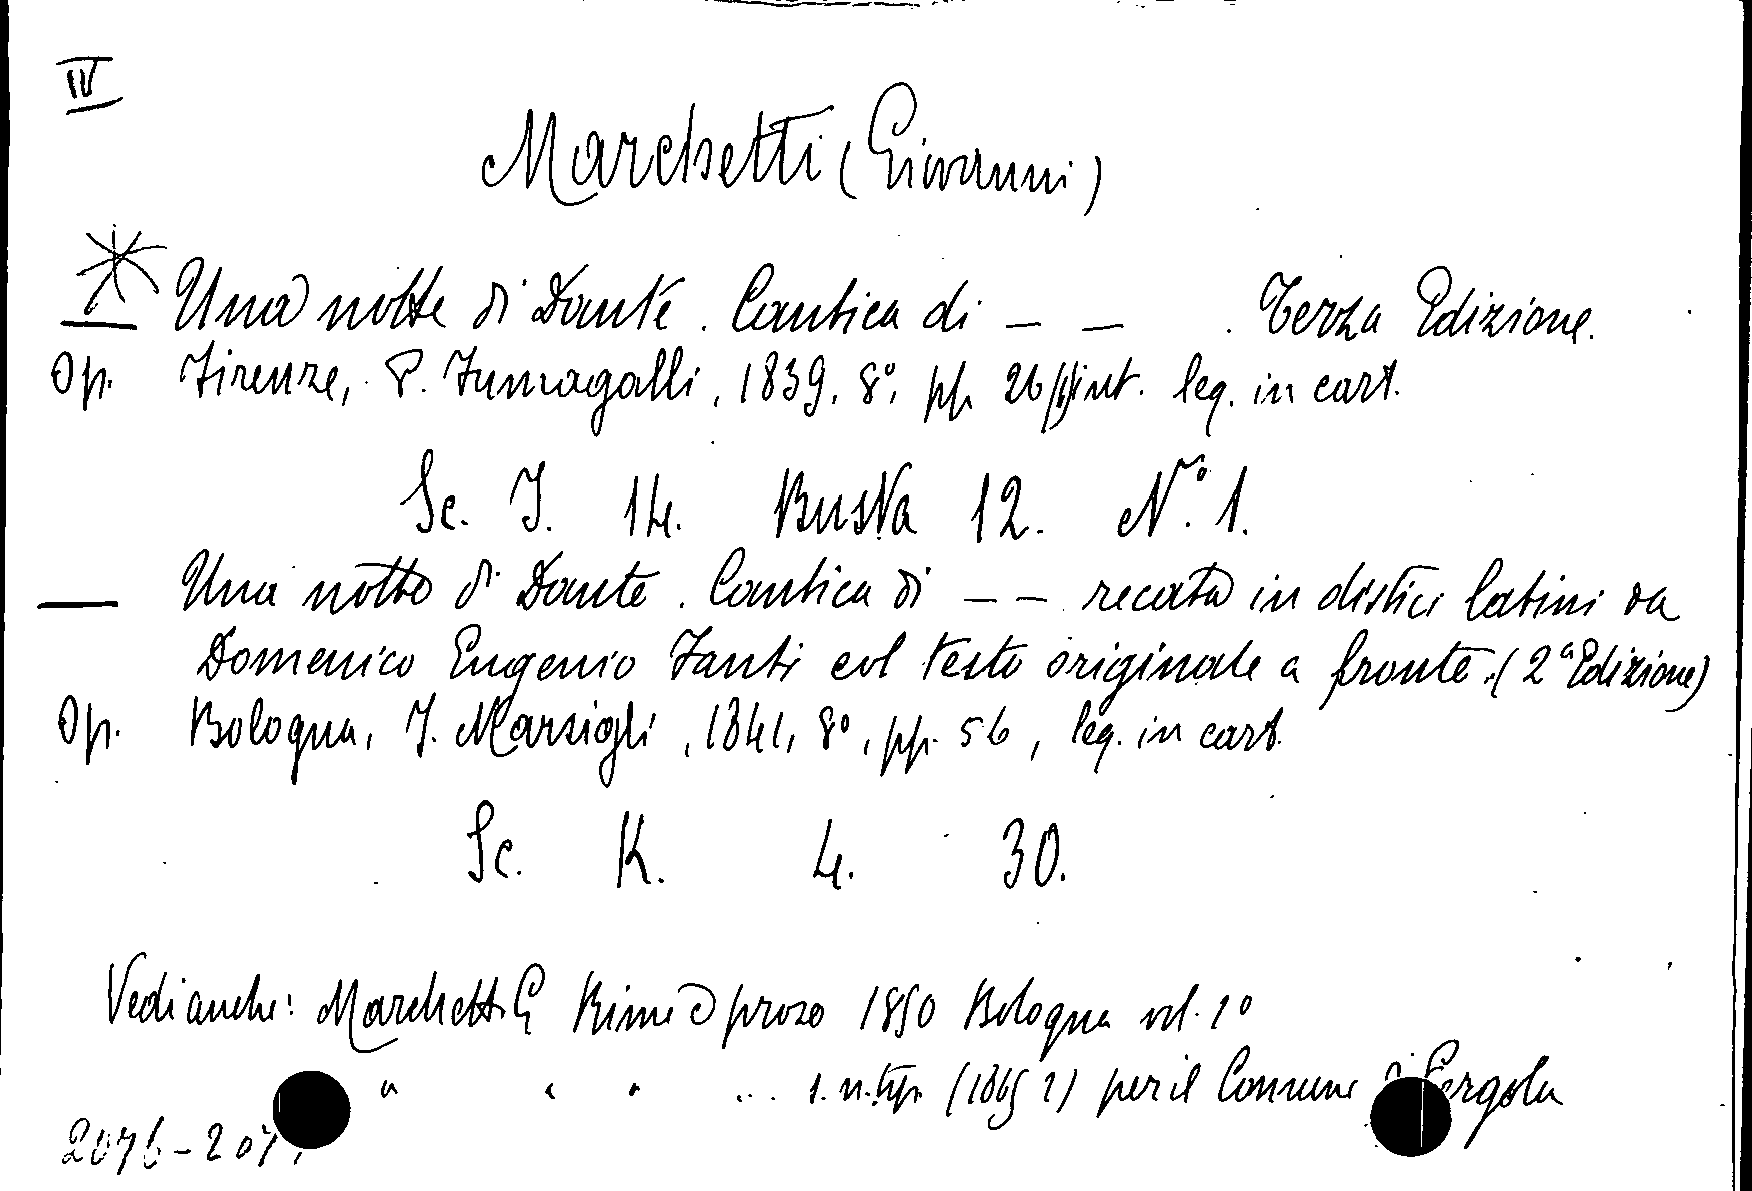 IV
Marchetti (Giovanni)
Una notte di Dante. Cantica di — — . Terza Edizione.
Op. Firenze, P. Fumagalli, 1839, 8°, pp. 26 int. leg. in cart.
Sc. I. 14. Busta 12. N.° 1.
— Una notte di Dante. Cantica di — — recata in distici latini da
Domenico Eugenio Fanti col testo originale a fronte. (2ª Edizione)
Op. Bologna, J. Marsigli, 1841, 8°, pp. 56, leg. in cart.
Sc. K. 4. 30.
Vedi anche: Marchetti G. Rime e prose 1850 Bologna vol. 1°
" " " ... s. n. tip. (1865 ?) per il Comune Pergola
2076-207